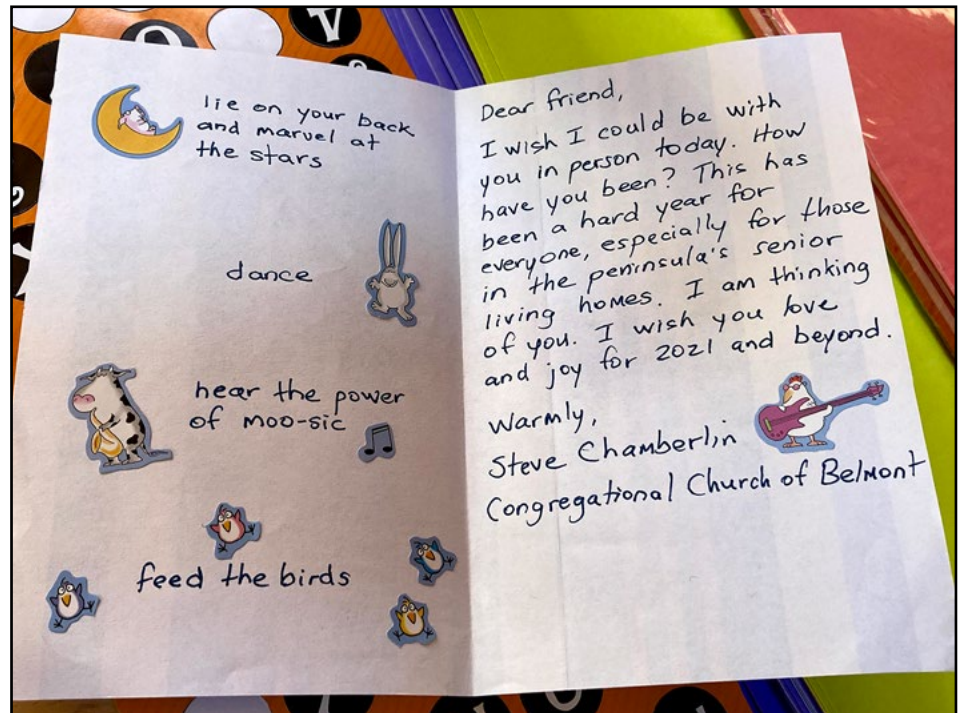 lie on your back
and marvel at
the stars
dance
hear the power
of moo-sic
feed the birds
Dear friend,
I wish I could be with
you in person today. How
have you been? This has
been a hard year for
everyone, especially for those
in the peninsula's senior
living homes. I am thinking
of you. I wish you love
and joy for 2021 and beyond.
Warmly,
Steve Chamberlin
Congregational Church of Belmont